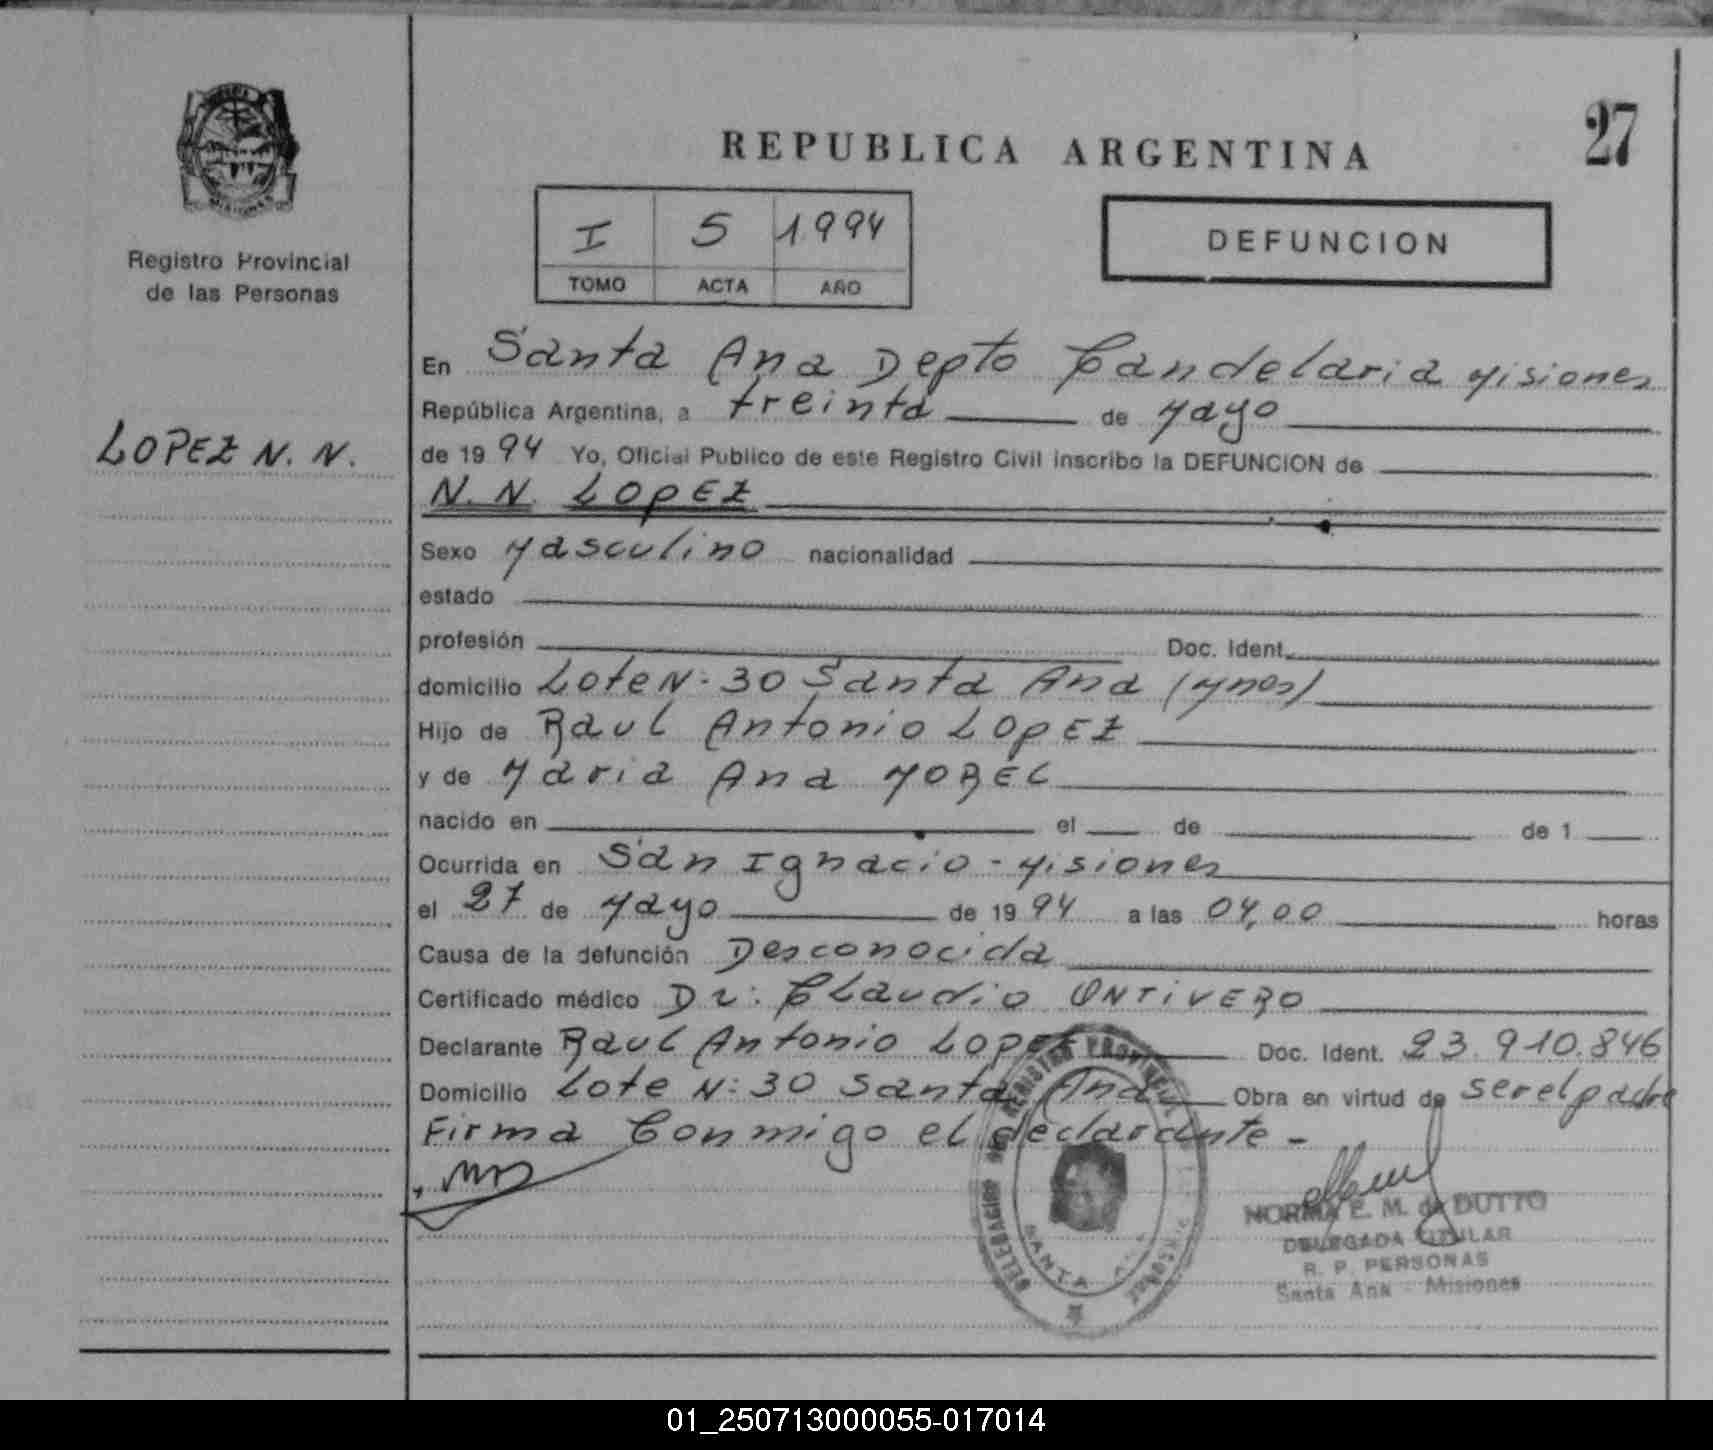 27
REPUBLICA ARGENTINA
I 5 1994
TOMO ACTA AÑO
DEFUNCION
Registro Provincial
de las Personas
LOPEZ N. N.
En Santa Ana Depto Candelaria Misiones
República Argentina, a treinta de Mayo
de 1994 Yo, Oficial Publico de este Registro Civil inscribo la DEFUNCION de
N. N. LOPEZ
Sexo Masculino nacionalidad
estado
profesión Doc. Ident.
domicilio Lote Nº 30 Santa Ana (Mnes)
Hijo de Raul Antonio LOPEZ
y de Maria Ana MOREL
nacido en el de de 1
Ocurrida en San Ignacio - Misiones
el 27 de Mayo de 1994 a las 04,00 horas
Causa de la defunción Desconocida
Certificado médico Dr: Claudio ONTIVERO
Declarante Raul Antonio Lopez Doc. Ident. 23.910.846
Domicilio Lote Nº 30 Santa Ana Obra en virtud de ser el padre
Firma Conmigo el declarante -
DELEGACION REGISTRO PROVINCIAL PERSONAS
SANTA
NORMA E. M. de DUTTO
DELEGADA TITULAR
R. P. PERSONAS
Santa Ana - Misiones
01_250713000055-017014